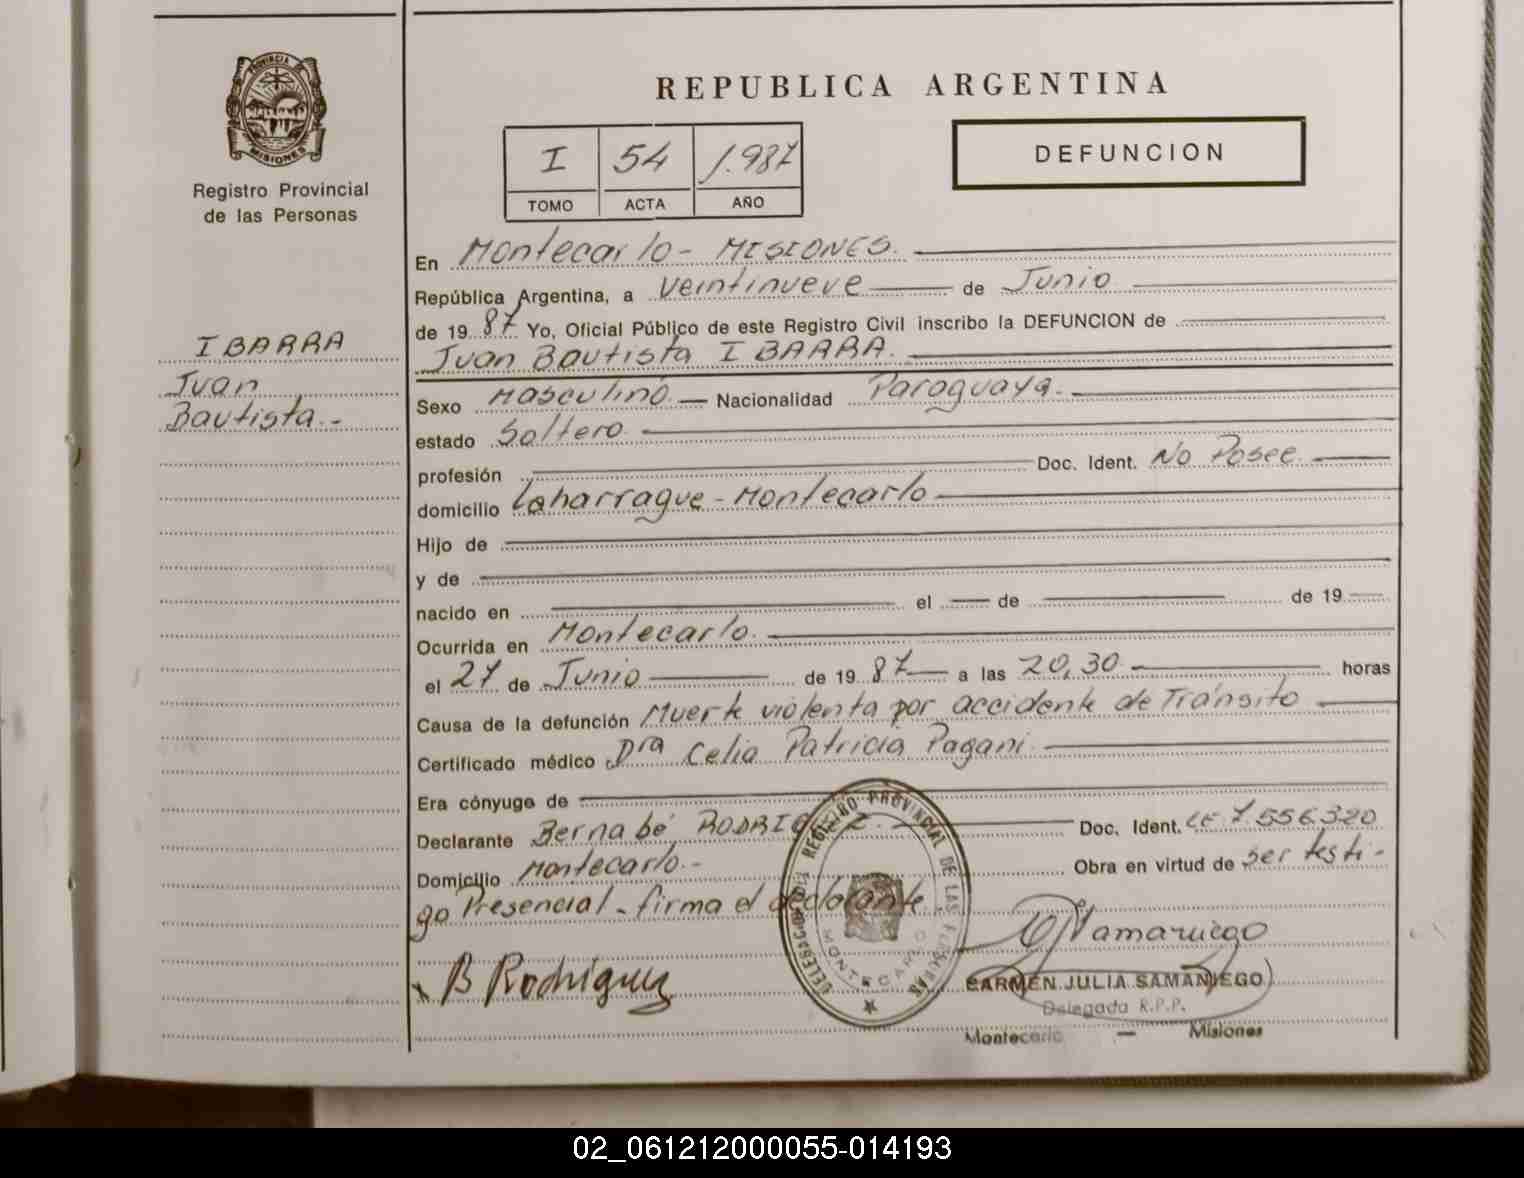 PROVINCIA DE
MISIONES
Registro Provincial
de las Personas
IBARRA
Juan
Bautista.-
REPUBLICA ARGENTINA
I 54 1.987
TOMO ACTA AÑO
DEFUNCION
En Montecarlo - MISIONES.
República Argentina, a veintinueve de Junio
de 19 87 Yo, Oficial Público de este Registro Civil inscribo la DEFUNCION de
Juan Bautista IBARRA.
Sexo Masculino. Nacionalidad Paraguaya.
estado Soltero.
profesión Doc. Ident. No Posee.
domicilio Laharrague - Montecarlo
Hijo de
y de
nacido en el de de 19
Ocurrida en Montecarlo.
el 27 de Junio de 19 87 a las 20,30 horas
Causa de la defunción Muerte violenta por accidente de Tránsito
Certificado médico Dra Celia Patricia Pagani.
Era cónyuge de
Declarante Bernabé RODRIGUEZ. Doc. Ident. LE 7.556.320
Domicilio Montecarlo.- Obra en virtud de ser testi-
go Presencial - firma el declarante.
B Rodriguez
DELEGACION REGISTRO PROVINCIAL DE LAS PERSONAS
MONTECARLO
Samaniego
CARMEN JULIA SAMANIEGO
Delegada R.P.P.
Montecarlo - Misiones
02_061212000055-014193